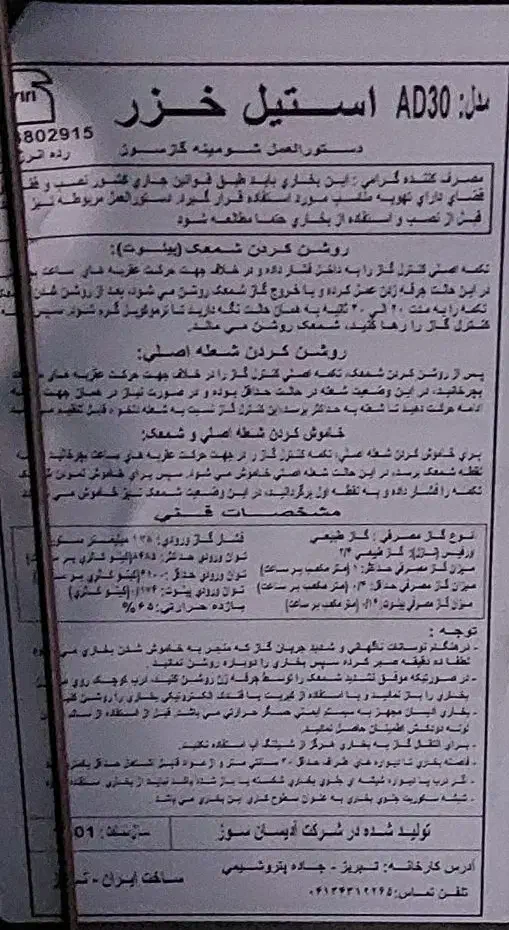 مدل: AD30 استیل خزر
8802915
دستورالعمل شومینه گازسوز
رده انرژ
مصرف کننده گرامی: این بخاری باید طبق قوانین جاری کشور نصب و فقط
فضای دارای تهویه مناسب مورد استفاده قرار گیرد. دستورالعمل مربوطه نیز
قبل از نصب و استفاده از بخاری حتما مطالعه شود
روشن کردن شمعک (پیلوت):
تکمه اصلی کنترل گاز را به داخل فشار داده و در خلاف جهت حرکت عقربه های ساعت
در این حالت جرقه زن عمل کرده و با خروج گاز شمعک روشن می شود، بعد از روشن شدن
تکمه را به مدت ۲۰ الی ۳۰ ثانیه به همان حالت نگه دارید تا ترموکوپل گرم شود. سپس
کنترل گاز را رها کنید، شمعک روشن می ماند.
روشن کردن شعله اصلی:
پس از روشن کردن شمعک، تکمه اصلی کنترل گاز را در خلاف جهت حرکت عقربه های
بچرخانید، در این وضعیت شعله در حالت حداقل بوده و در صورت نیاز در همان جهت
ادامه حرکت دهید تا شعله به حداکثر برسد. این کنترل گاز نسبت به شعله دلخواه قابل تنظیم
خاموش کردن شعله اصلی و شمعک:
برای خاموش کردن شعله اصلی، تکمه کنترل گاز را در جهت حرکت عقربه های ساعت بچرخانید
نقطه شمعک برسد، در این حالت شعله اصلی خاموش می شود. سپس برای خاموش نمودن
تکمه را فشار داده و به نقطه اول برگردانید، در این وضعیت شمعک نیز خاموش می
مشخصات فنی
نوع گاز مصرفی: گاز طبیعی
فشار گاز ورودی: ۱۷۸ میلیمتر ستون
اوریفیس (نازل): گاز طبیعی ۲/۴
توان ورودی حداکثر: (کیلو کالری بر ساعت)
میزان گاز مصرفی حداکثر: ۱ (متر مکعب بر ساعت)
توان ورودی حداقل: (کیلو کالری بر
میزان گاز مصرفی حداقل: (متر مکعب بر ساعت)
توان ورودی پیلوت: (کیلو کالری)
میزان گاز مصرفی پیلوت: (متر مکعب بر ساعت)
بازده حرارتی: ۶۵%
توجه:
- در هنگام نوسانات ناگهانی و شدید جریان گاز که منجر به خاموش شدن بخاری می
لطفا ده دقیقه صبر کرده سپس بخاری را دوباره روشن نمائید.
- در صورتیکه موفق نشدید شمعک را توسط جرقه زن روشن کنید، درب کوچک روی
بخاری را باز نمایید و با استفاده از کبریت یا فندک الکترونیکی بخاری را روشن
- بخاری آدیسان مجهز به سیستم ایمنی حسگر حرارتی می باشد. قبل از استفاده از
لوله دودکش اطمینان حاصل نمائید.
- برای انتقال گاز به بخاری هرگز از شیلنگ آب استفاده نکنید.
- فاصله بخاری تا دیواره های طرف حداقل ۳۰ سانتی متر و از مواد قابل اشتعال حداقل
- گر درب یا دیواره شیشه ای جلوی بخاری شکسته یا باز شده باشد نباید از بخاری
- شیشه سکوریت جلوی بخاری به عنوان سطوح کاری این بخاری می باشد
تولید شده در شرکت آدیسان سوز
سال ساخت: 01
آدرس کارخانه: تبریز - جاده پتروشیمی
تلفن تماس: ۰۴۱۳۴۳۱۲۲۶۵
ساخت ایران -